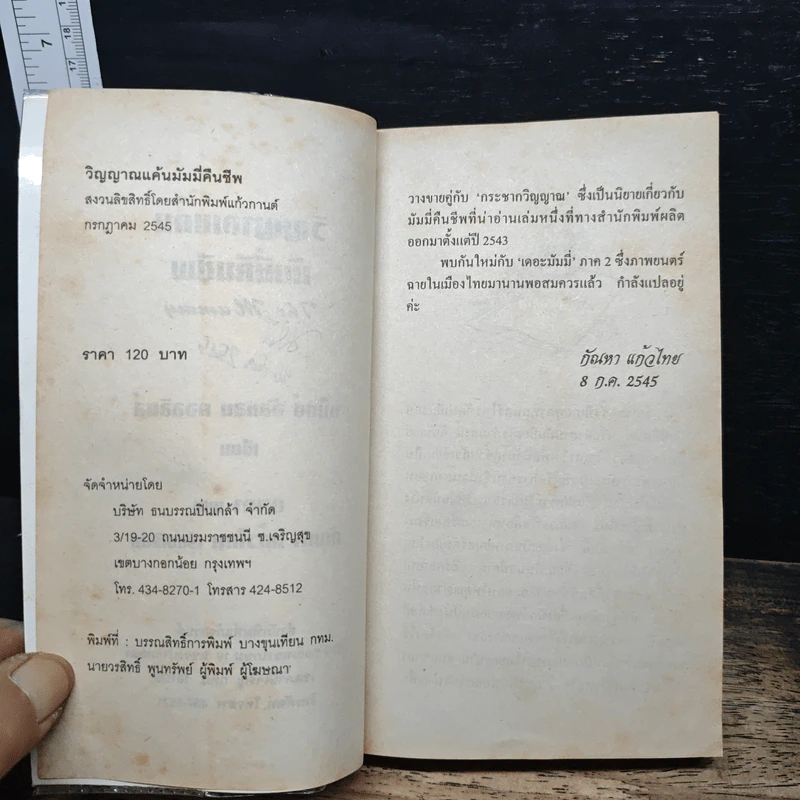 7
18
17
วิญญาณแค้นมัมมี่คืนชีพ
สงวนลิขสิทธิ์โดยสำนักพิมพ์แก้วกานต์
กรกฎาคม 2545
ราคา 120 บาท
จัดจำหน่ายโดย
บริษัท ธนบรรณปิ่นเกล้า จำกัด
3/19-20 ถนนบรมราชชนนี ซ.เจริญสุข
เขตบางกอกน้อย กรุงเทพฯ
โทร. 434-8270-1 โทรสาร 424-8512
พิมพ์ที่ : บรรณสิทธิ์การพิมพ์ บางขุนเทียน กทม.
นายวรสิทธิ์ พูนทรัพย์ ผู้พิมพ์ ผู้โฆษณา
วางขายคู่กับ 'กระชากวิญญาณ' ซึ่งเป็นนิยายเกี่ยวกับ
มัมมี่คืนชีพที่น่าอ่านเล่มหนึ่งที่ทางสำนักพิมพ์ผลิต
ออกมาตั้งแต่ปี 2543
พบกันใหม่กับ 'เดอะมัมมี่' ภาค 2 ซึ่งภาพยนตร์
ฉายในเมืองไทยมานานพอสมควรแล้ว กำลังแปลอยู่
ค่ะ
กัณหา แก้วไทย
8 ก.ค. 2545